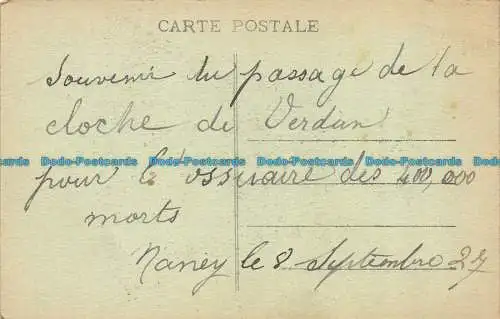 CARTE POSTALE
Souvenir du passage de la
cloche de Verdun
Dodo-Postcards Dodo-Postcards Dodo-Postcards Dodo-Postcards Dodo-Postcards
pour l'ossuaire des 400,000
morts
Nancy le 8 Septembre 27